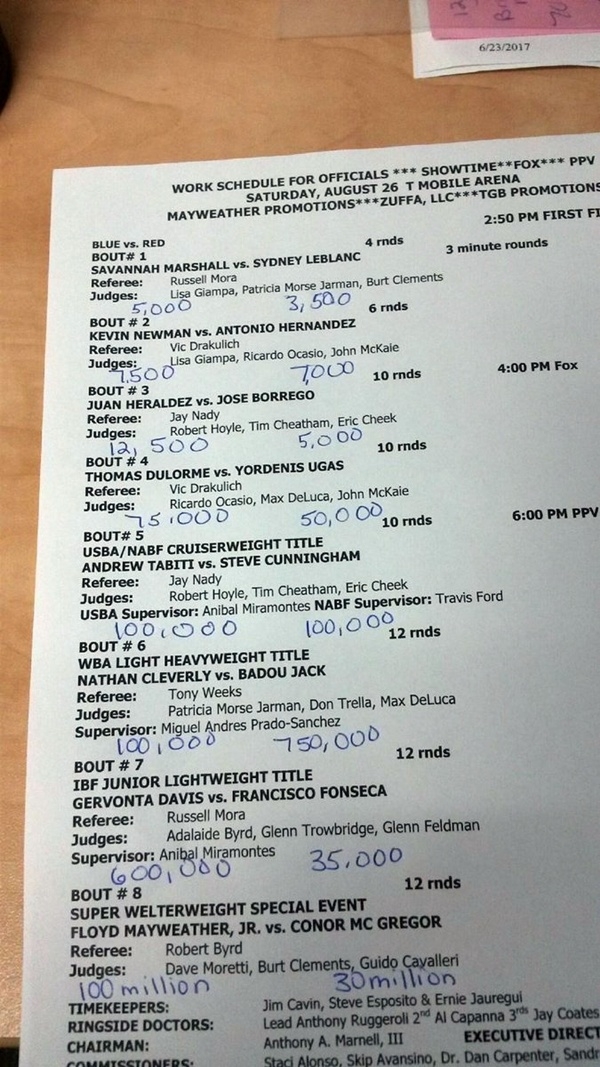 6/23/2017
WORK SCHEDULE FOR OFFICIALS *** SHOWTIME**FOX*** PPV
SATURDAY, AUGUST 26 T MOBILE ARENA
MAYWEATHER PROMOTIONS***ZUFFA, LLC***TGB PROMOTIONS
2:50 PM FIRST FI
BLUE vs. RED 4 rnds 3 minute rounds
BOUT# 1
SAVANNAH MARSHALL vs. SYDNEY LEBLANC
Referee: Russell Mora
Judges: Lisa Giampa, Patricia Morse Jarman, Burt Clements
5,000 3,500 6 rnds
BOUT # 2
KEVIN NEWMAN vs. ANTONIO HERNANDEZ
Referee: Vic Drakulich
Judges: Lisa Giampa, Ricardo Ocasio, John McKaie
7,500 7,000 10 rnds 4:00 PM Fox
BOUT # 3
JUAN HERALDEZ vs. JOSE BORREGO
Referee: Jay Nady
Judges: Robert Hoyle, Tim Cheatham, Eric Cheek
12,500 5,000 10 rnds
BOUT # 4
THOMAS DULORME vs. YORDENIS UGAS
Referee: Vic Drakulich
Judges: Ricardo Ocasio, Max DeLuca, John McKaie
75,000 50,000 10 rnds 6:00 PM PPV
BOUT# 5
USBA/NABF CRUISERWEIGHT TITLE
ANDREW TABITI vs. STEVE CUNNINGHAM
Referee: Jay Nady
Judges: Robert Hoyle, Tim Cheatham, Eric Cheek
USBA Supervisor: Anibal Miramontes NABF Supervisor: Travis Ford
100,000 100,000 12 rnds
BOUT # 6
WBA LIGHT HEAVYWEIGHT TITLE
NATHAN CLEVERLY vs. BADOU JACK
Referee: Tony Weeks
Judges: Patricia Morse Jarman, Don Trella, Max DeLuca
Supervisor: Miguel Andres Prado-Sanchez
100,000 750,000 12 rnds
BOUT # 7
IBF JUNIOR LIGHTWEIGHT TITLE
GERVONTA DAVIS vs. FRANCISCO FONSECA
Referee: Russell Mora
Judges: Adalaide Byrd, Glenn Trowbridge, Glenn Feldman
Supervisor: Anibal Miramontes
600,000 35,000 12 rnds
BOUT # 8
SUPER WELTERWEIGHT SPECIAL EVENT
FLOYD MAYWEATHER, JR. vs. CONOR MC GREGOR
Referee: Robert Byrd
Judges: Dave Moretti, Burt Clements, Guido Cavalleri
100 million 30 million
TIMEKEEPERS: Jim Cavin, Steve Esposito & Ernie Jauregui
RINGSIDE DOCTORS: Lead Anthony Ruggeroli 2nd Al Capanna 3rds Jay Coates
CHAIRMAN: Anthony A. Marnell, III EXECUTIVE DIRECT
COMMISSIONERS: Staci Alonso, Skip Avansino, Dr. Dan Carpenter, Sandr